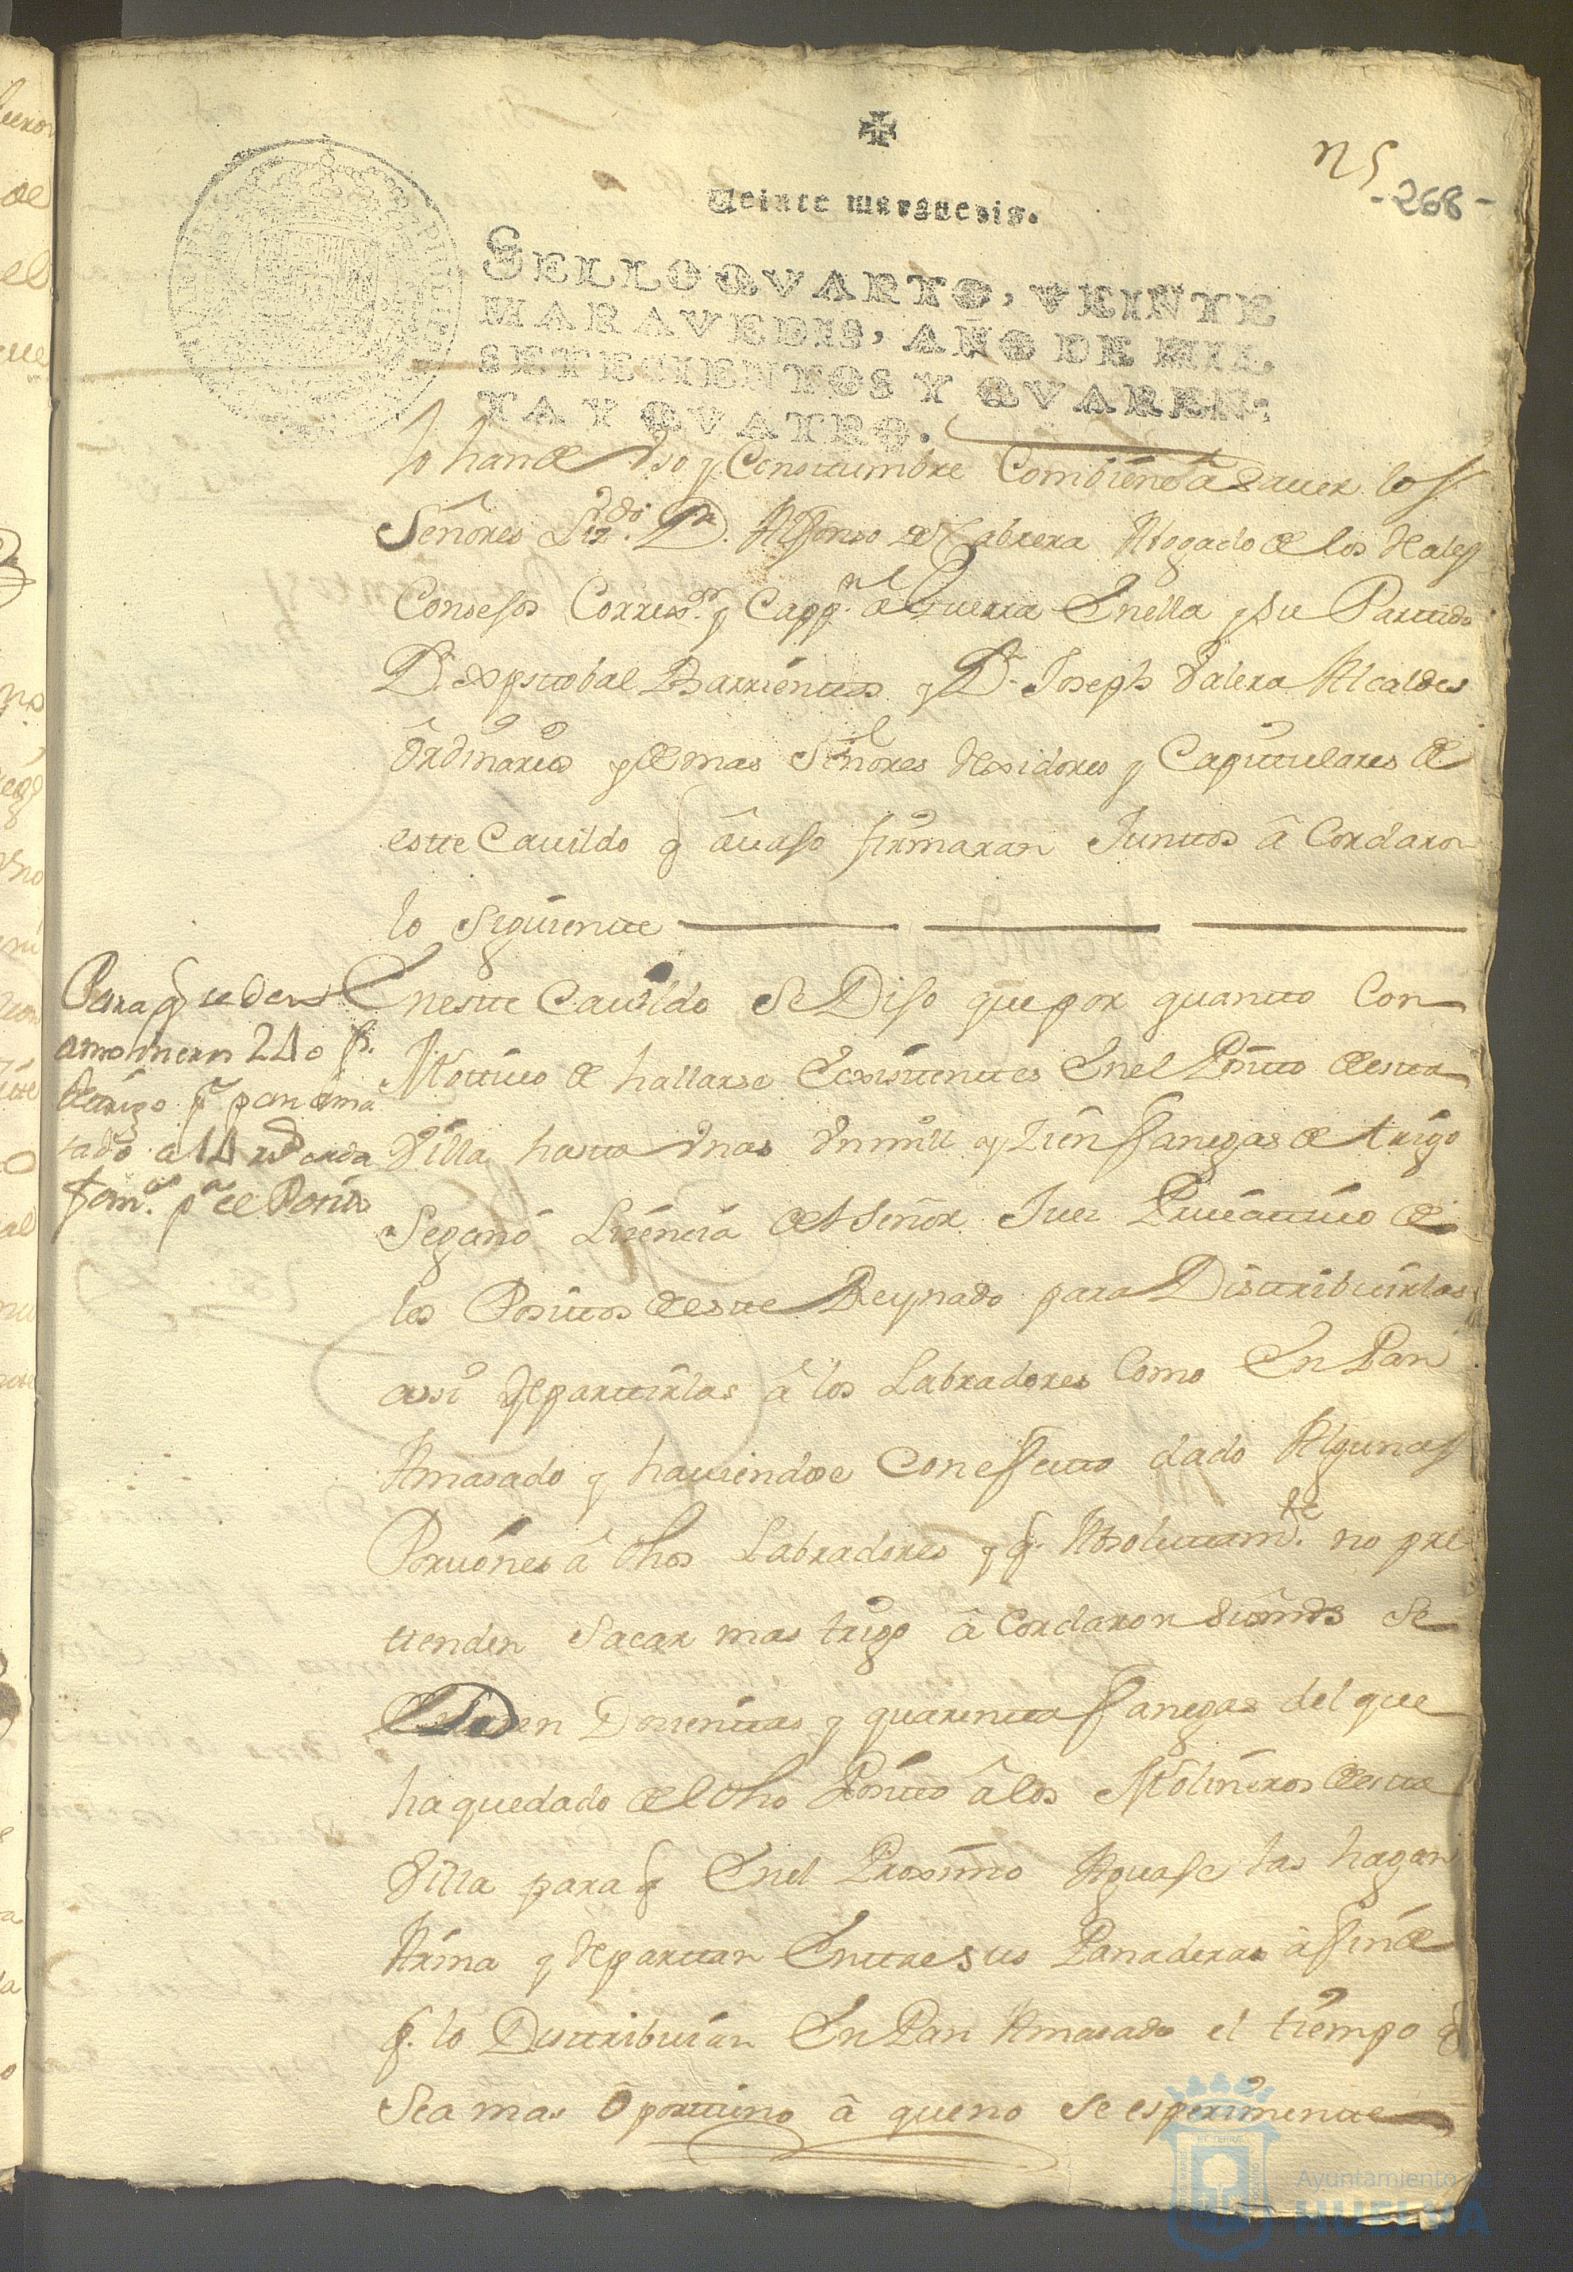 n 5
-268-
Veinte marauedis.
SELLO QVARTO, VEINTE
MARAVEDIS, AÑO DE MIL
SETECIENTOS Y QVAREN-
TA Y QVATRO.
lo han de Vso y Constumbre Combiene a sauer los
Señores Lizdo. Dn. Alfonso de Cabrera Abogado de los Reales
Consejos Correxor. y Cappn. a Guerra En ella y su Partido
Dn. Xpstobal Barrientos y Dn. Joseph Valera Alcaldes
Ordinarios y demas Señores Rexidores y Capitulares de
este Cauildo q auajo firmaran Juntos â Cordaron
lo siguiente
Para q se den
a molineros 240 f.
de trigo pa. pan ama
sado a 14 rs. cada
fan.ª pa. el Posito
En este Cauildo se Dijo que por quanto Con
Motiuo de hallarse Existentes En el Posito de esta
Villa hasta Vnas Vn mill y Zien fanegas de trigo
se ganó Lizencia del señor Juez Priuatiuo de
los Positos de este Reynado para Distribuirlas
assi Repartirlas â los Labradores Como En Pan
Amasado y hauiendose Con efecto dado Algunas
Porziones â dhos Labradores y q. Absolutamte. no pre
tenden sacar mas trigo â Cordaron sus mds se
den Dozientas y quarenta fanegas del que
ha quedado del dho Posito â los Molineros de esta
Villa para q En el Proximo Aguaje las hagan
Arina y Repartan Entre sus Panaderas â fin de
q. lo Distribuian En Pan Amasado el tiempo q
sea mas Oportuno â que no se esperimente
Ayuntamiento de
HUELVA